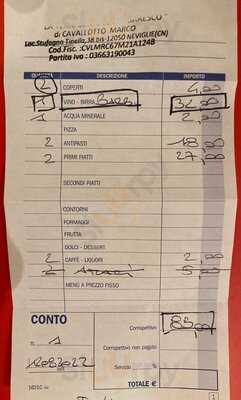 di CAVALLOTTO MARCO
Loc.Stufagno Tinella,38 bis-12050 NEVIGLIE(CN)
Cod.Fisc.:CVLMRC67M21A124B
Partita iva : 03663190043
DESCRIZIONE IMPORTO
2 COPERTI 4,00
1 VINO - BIRRA 32,00
1 ACQUA MINERALE 2,00
PIZZA
2 ANTIPASTI 18,00
2 PRIMI PIATTI 27,00
SECONDI PIATTI
CONTORNI
FORMAGGI
FRUTTA
DOLCI - DESSERT
2 CAFFÈ - LIQUORI 2,00
2 5,00
MENÙ A PREZZO FISSO
CONTO
Corrispettivo 85,00
n. 1
Corrispettivo non pagato
Servizio %
TOTALE €
1